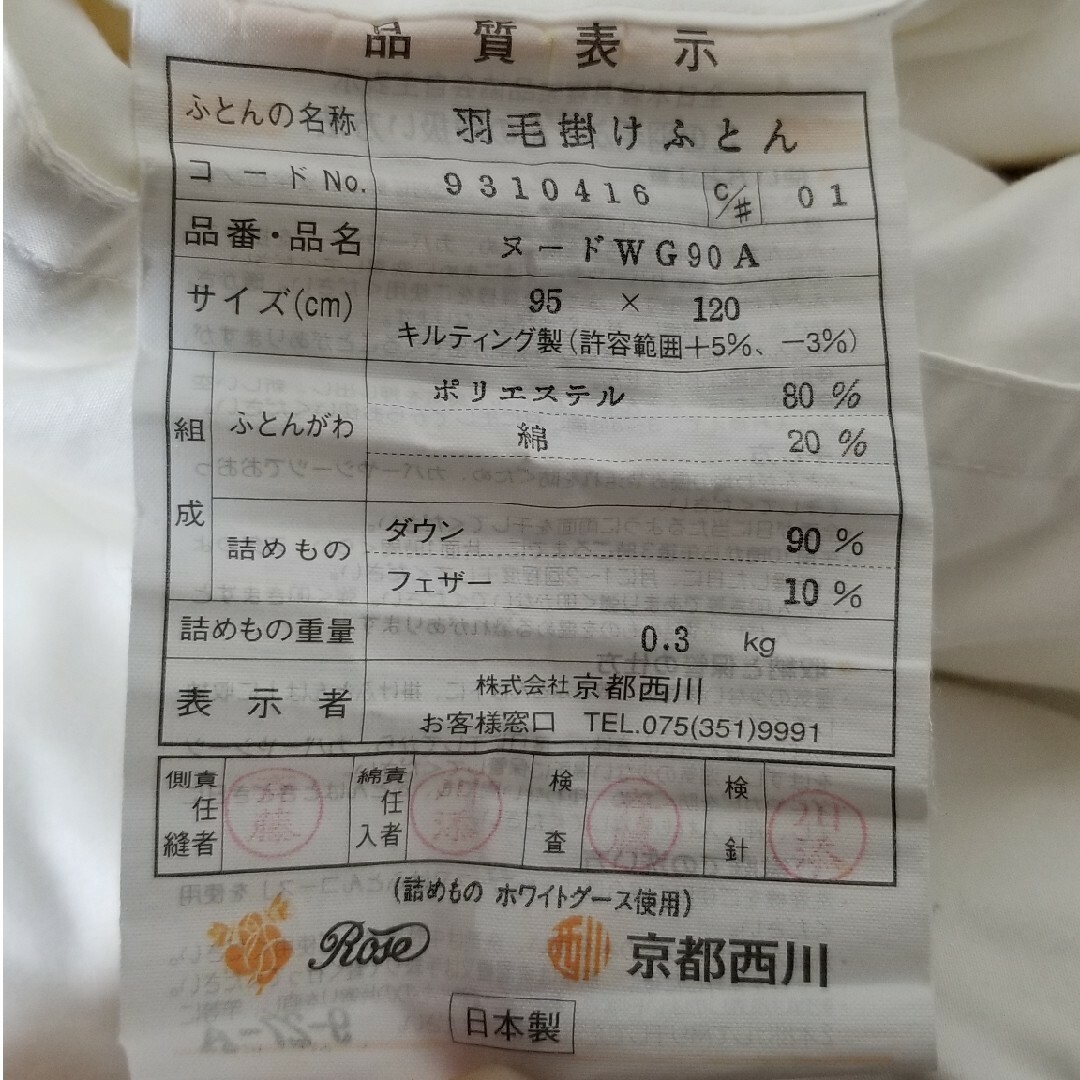 品質表示
ふとんの名称 羽毛掛けふとん
コードNo. 9310416 C/# 01
品番・品名 ヌードWG90A
サイズ(cm) 95 × 120
キルティング製(許容範囲+5%、-3%)
組成 ふとんがわ ポリエステル 80%
綿 20%
詰めもの ダウン 90%
フェザー 10%
詰めものの重量 0.3 kg
表示者 株式会社京都西川
お客様窓口 TEL.075(351)9991
側責任縫者 綿責任入者 検査 検針
(詰めもの ホワイトグース使用)
Rose 西川 京都西川
日本製